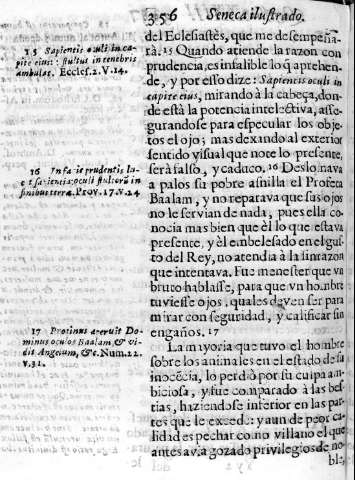 356 Seneca ilustrado.
15 Sapientis oculi in ca-
pite eius: stultus in tenebris
ambulat. Eccles. 2. V. 14.
16 In facie prudentis lu-
cet sapientia: oculi stultorũ in
finibus terræ. Prov. 17. v. 24
17 Protinus aperuit Do-
minus oculos Baalam, & vi-
dit Angelum, &c. Num. 22.
v. 31.
del Eclesiastès, que me desempeña-
rà. 15 Quando atiende la razon con
prudencia, es infalible lo q̃ aprehen-
de, y por esso dize: Sapientis oculi in
capite eius, mirando à la cabeça, don-
de està la potencia intelectiva, asse-
gurandose para especular los obje-
tos el ojo; mas dexando al exterior
sentido visual que note lo presente,
serà falso, y caduco. 16 Deslomava
a palos su pobre asnilla el Profeta
Baalam, y no reparava que sus ojos
no le servian de nada, pues ella co-
nocia mas bien que èl lo que estava
presente, y èl embelesado en el gus-
to del Rey, no atendia à la sinrazon
que intentava. Fue menester que vn
bruto hablasse, para que vn hõbre
tuviesse ojos, quales deven ser para
mirar con seguridad, y calificar sin
engaños. 17
La mayoria que tuvo el hombre
sobre los animales en el estado de su
inocẽcia, lo perdiò por su culpa am-
biciosa, y fue comparado à las bes-
tias, haziendose inferior en las par-
tes que le excede: y aun de peor ca-
lidad es pechar como villano el que
antes avia gozado privilegios de no-
ble